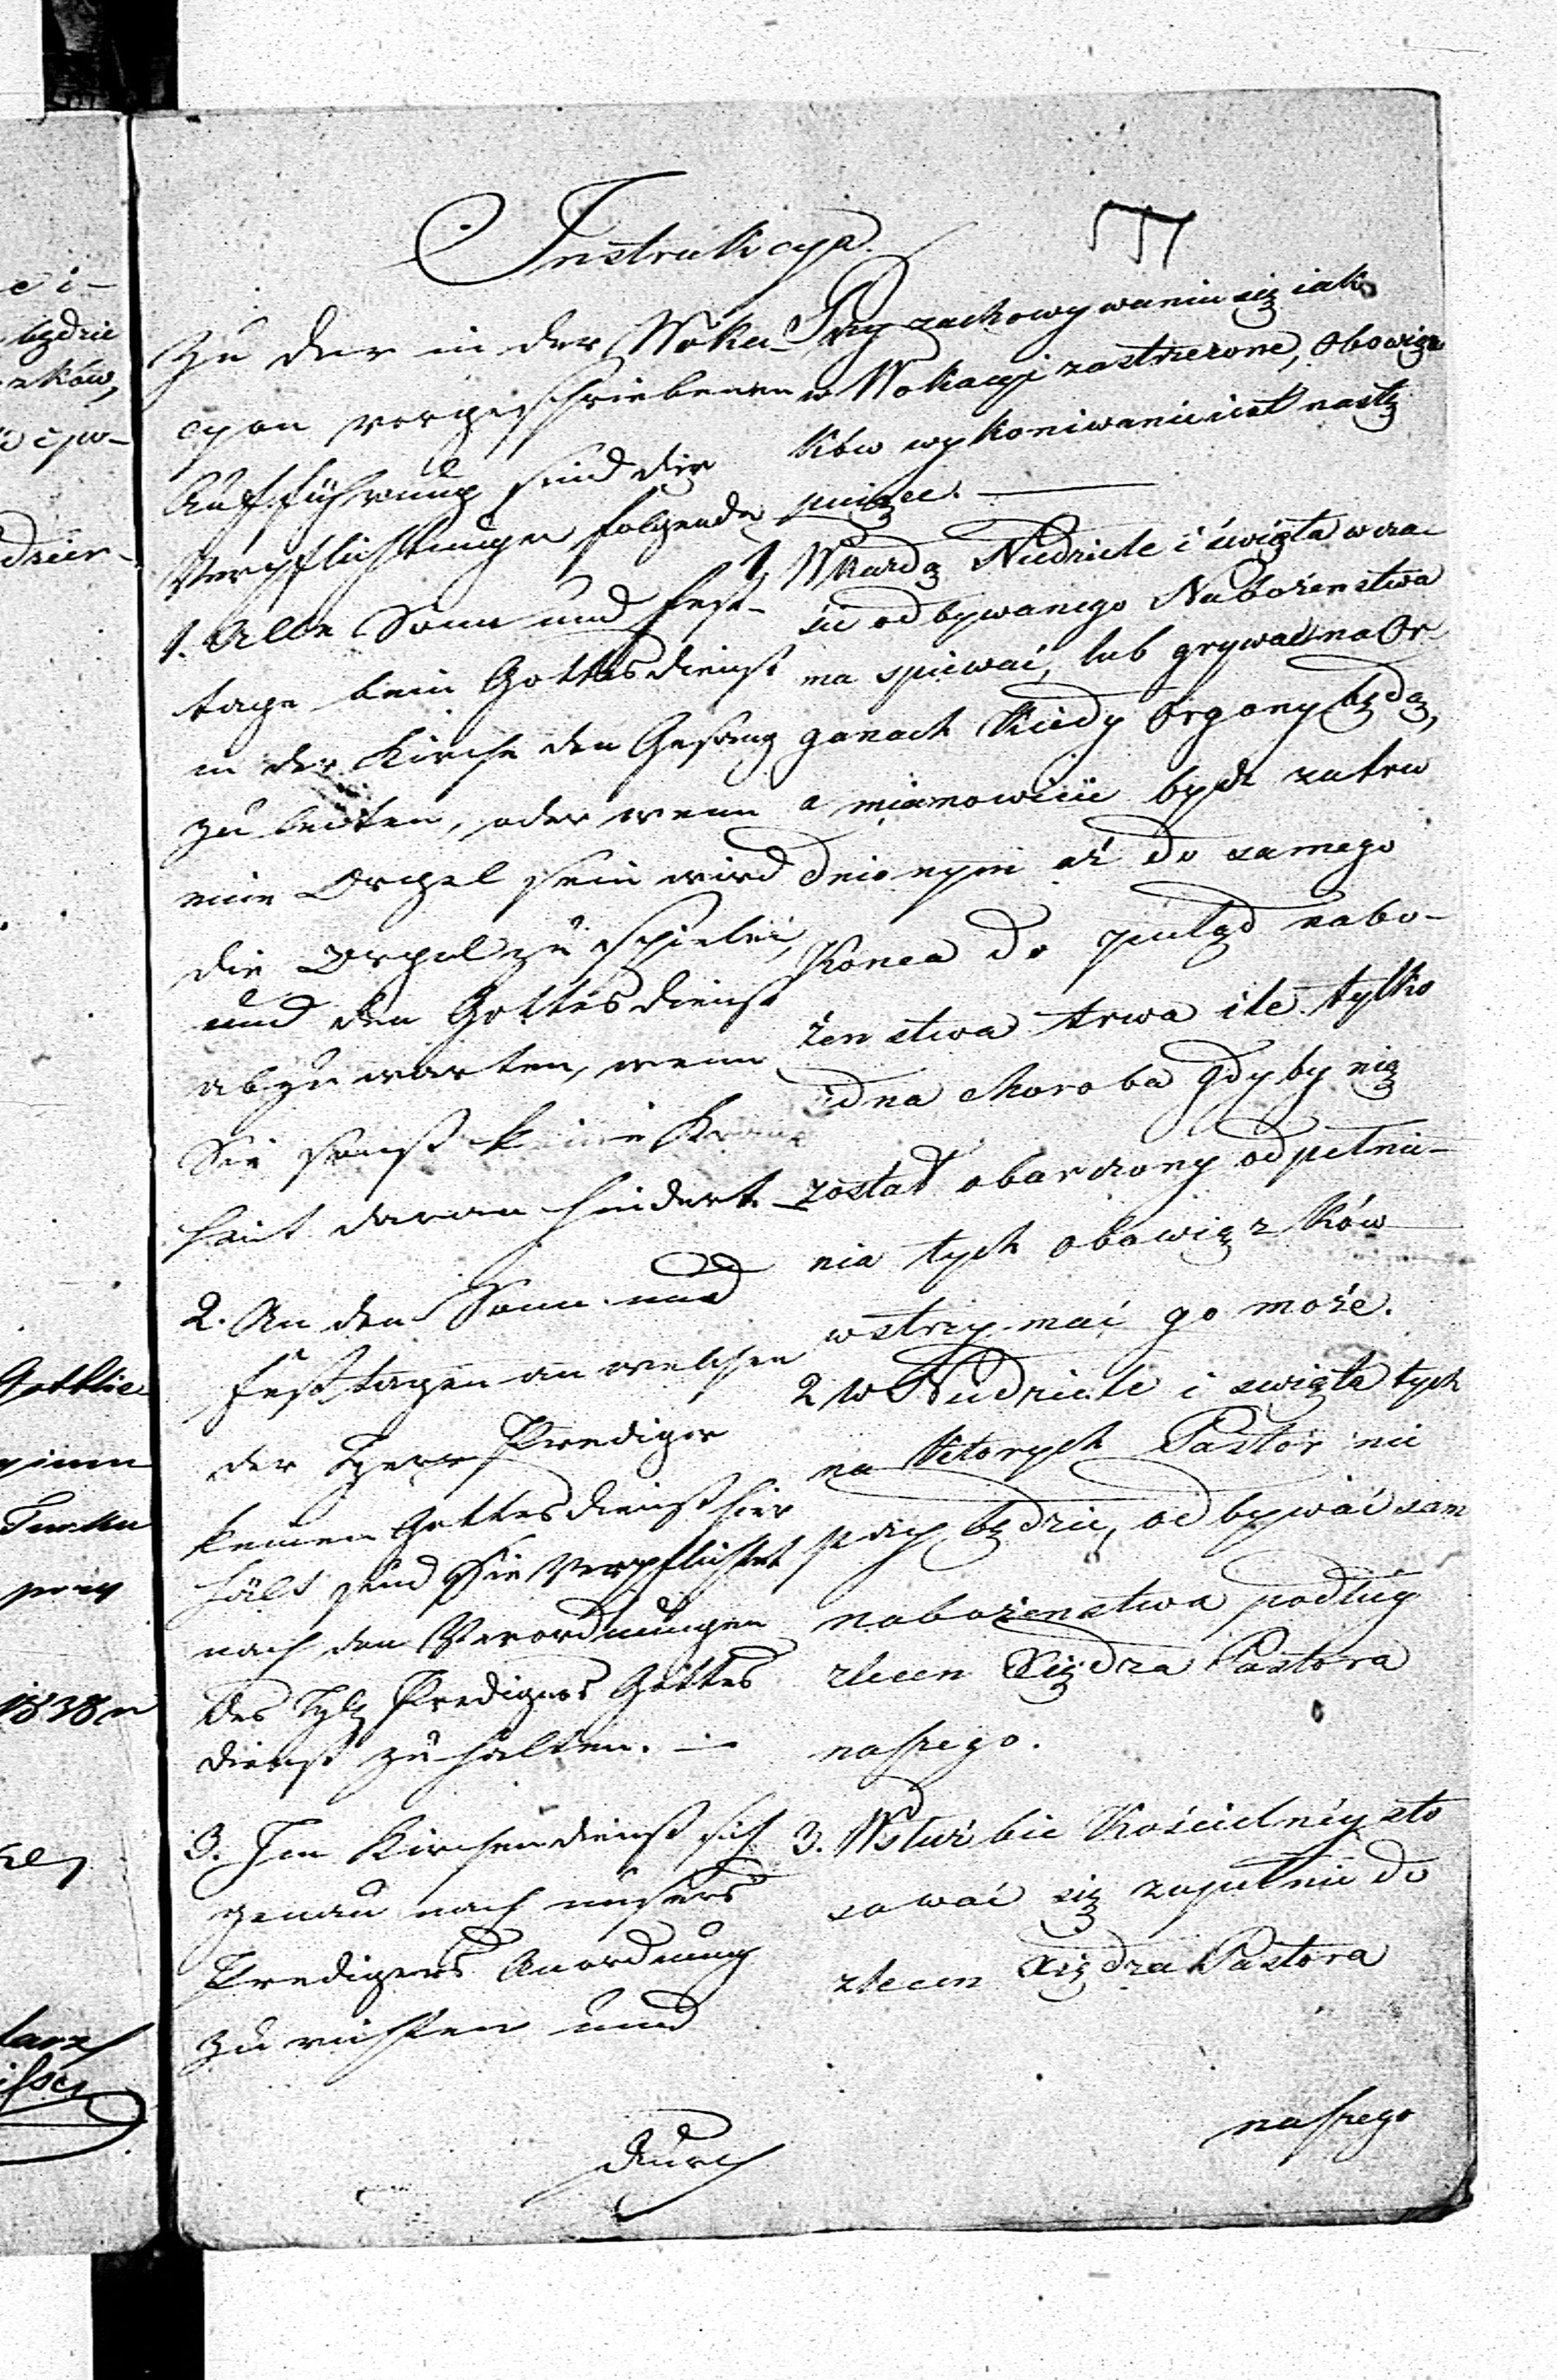 Instrukcya.
Zu der in der Woka-
cyon vorgeschriebenen
Aufführung sind die
Verpflichtungen folgende
1. Alle Sonn und Fest-
tage beim Gottesdienst
in der Kirche den Gesang
zu leiten, oder wenn
eine Orgel sein wird
die Orgel zu spielen,
und den Gottesdienst
abzuwarten, wenn
Sie sonst keine Krank
heit daran hindert.
2. An den Sonn und
Festtagen an welchen
der Herr Prediger
keinen Gottesdienst hier
hält sind Sie Verpflichtet
nach den Verordnungen
des Predigers Gottes
dienst zu halten. —
3. Im Kirchendienst sich
genau nach unsers
Predigers Anordnung
zu richten und
durch
Przy zachowywaniu się iak
w Wokacyi zastrzerone, obowiąz
ków wykoniwanie iest nastę
puiące. —
1. Wkardą Niedziele i święta w cza
sie odbywanego Nabożenstwa
ma spiewać, lub grywać na Or
ganach kiedy Organy będą,
a mianowicie bydz zatru
dnionym aż do samego
Konca do puląd nabo-
żenstwa trwa ile tylko
iedna choroba gdyby nią
został obarczony od pełnie-
nia tych obowiązków
wstrzymać go może.
2 w Niedziele i swięta tych
na ktorych Pastor nie
przy będzie, odbywać sam
nabożenstwa podług
zlecen Xiędza Pastora
naszego.
3. Wsłuż bie Kościelnéy sto
sować się zupełnie do
zlecen Xiędza Pastora
naszego
ci-
będzie
zków,
dzier-
Gottlie
1838 r